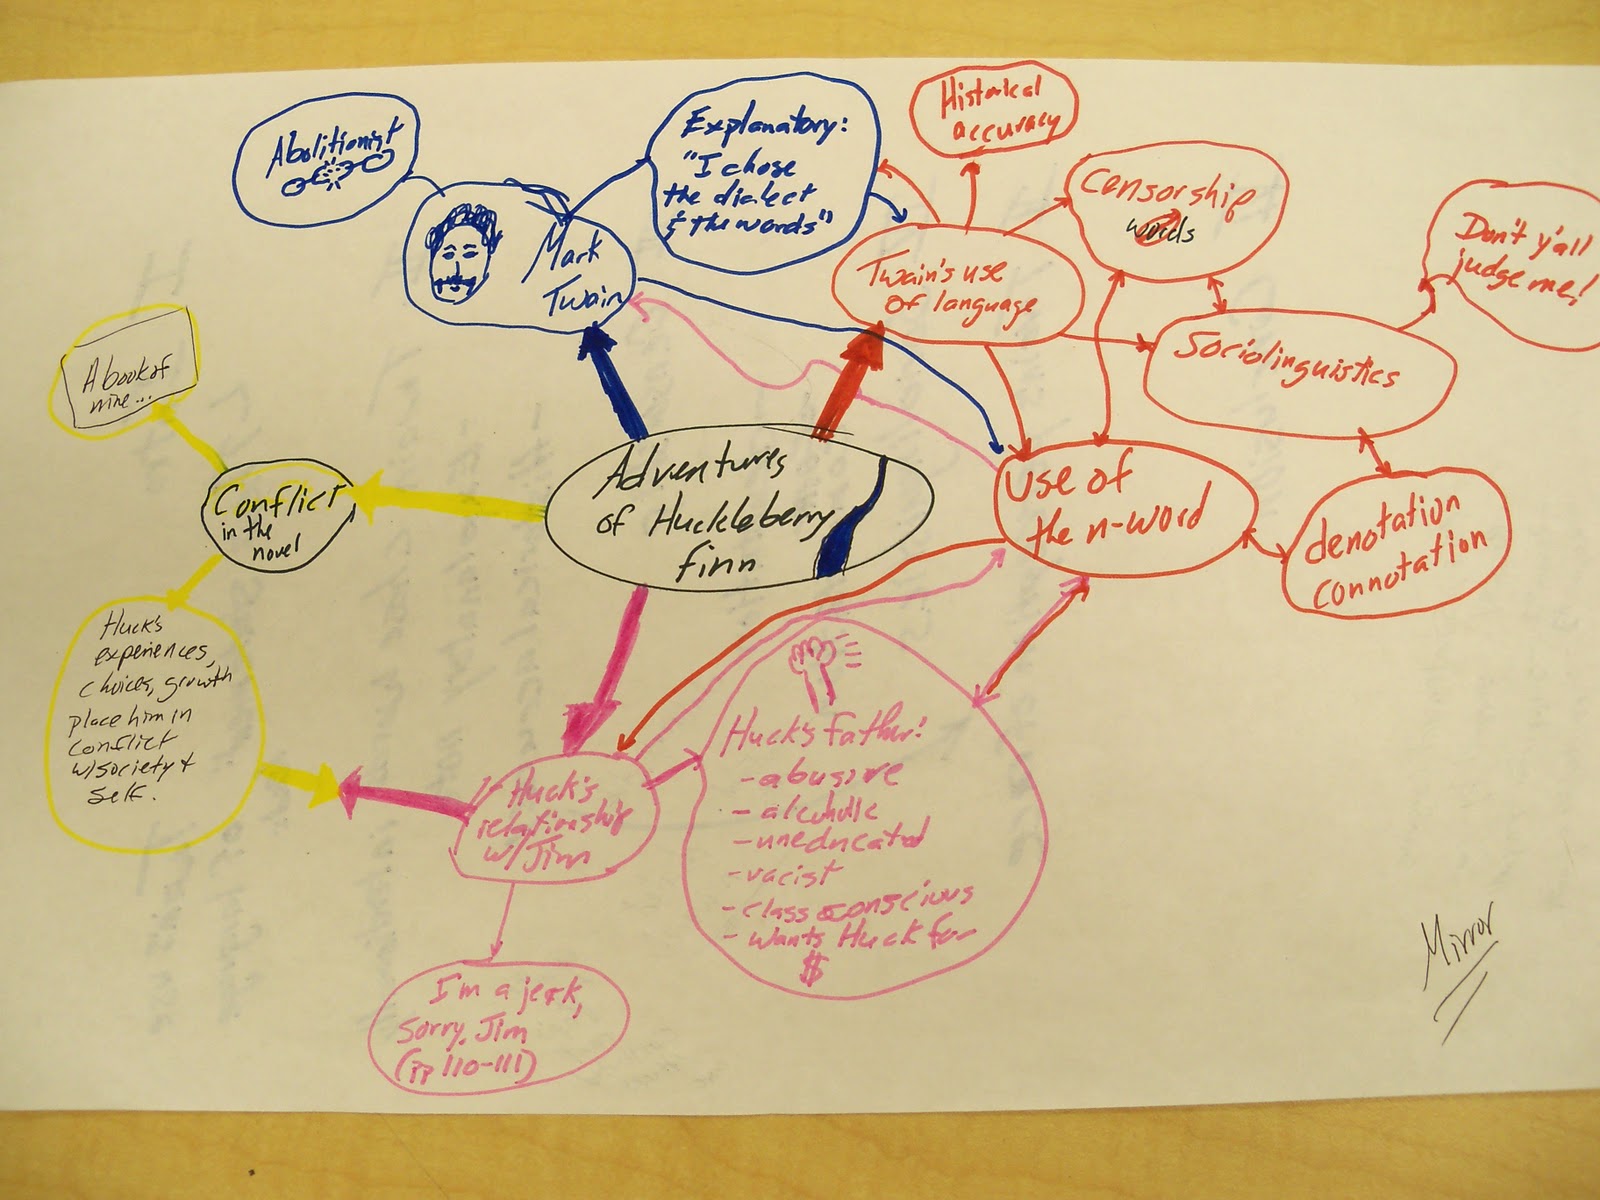 Abolitionist
Mark
Twain
Explanatory:
"I chose
the dialect
& the words"
Historical
accuracy
Censorship
words
Twain's use
of language
Don't y'all
judge me!
Sociolinguistics
use of
the n-word
denotation
connotation
Adventures
of Huckleberry
Finn
A book of
mine...
Conflict
in the
novel
Huck's
experiences,
choices, growth
place him in
conflict
w/society +
self.
Huck's
relationship
w/Jim
I'm a jerk,
sorry, Jim
(pp 110-111)
Huck's father:
- abusive
- alcoholic
- uneducated
- racist
- class conscious
- wants Huck for
$
Mirror